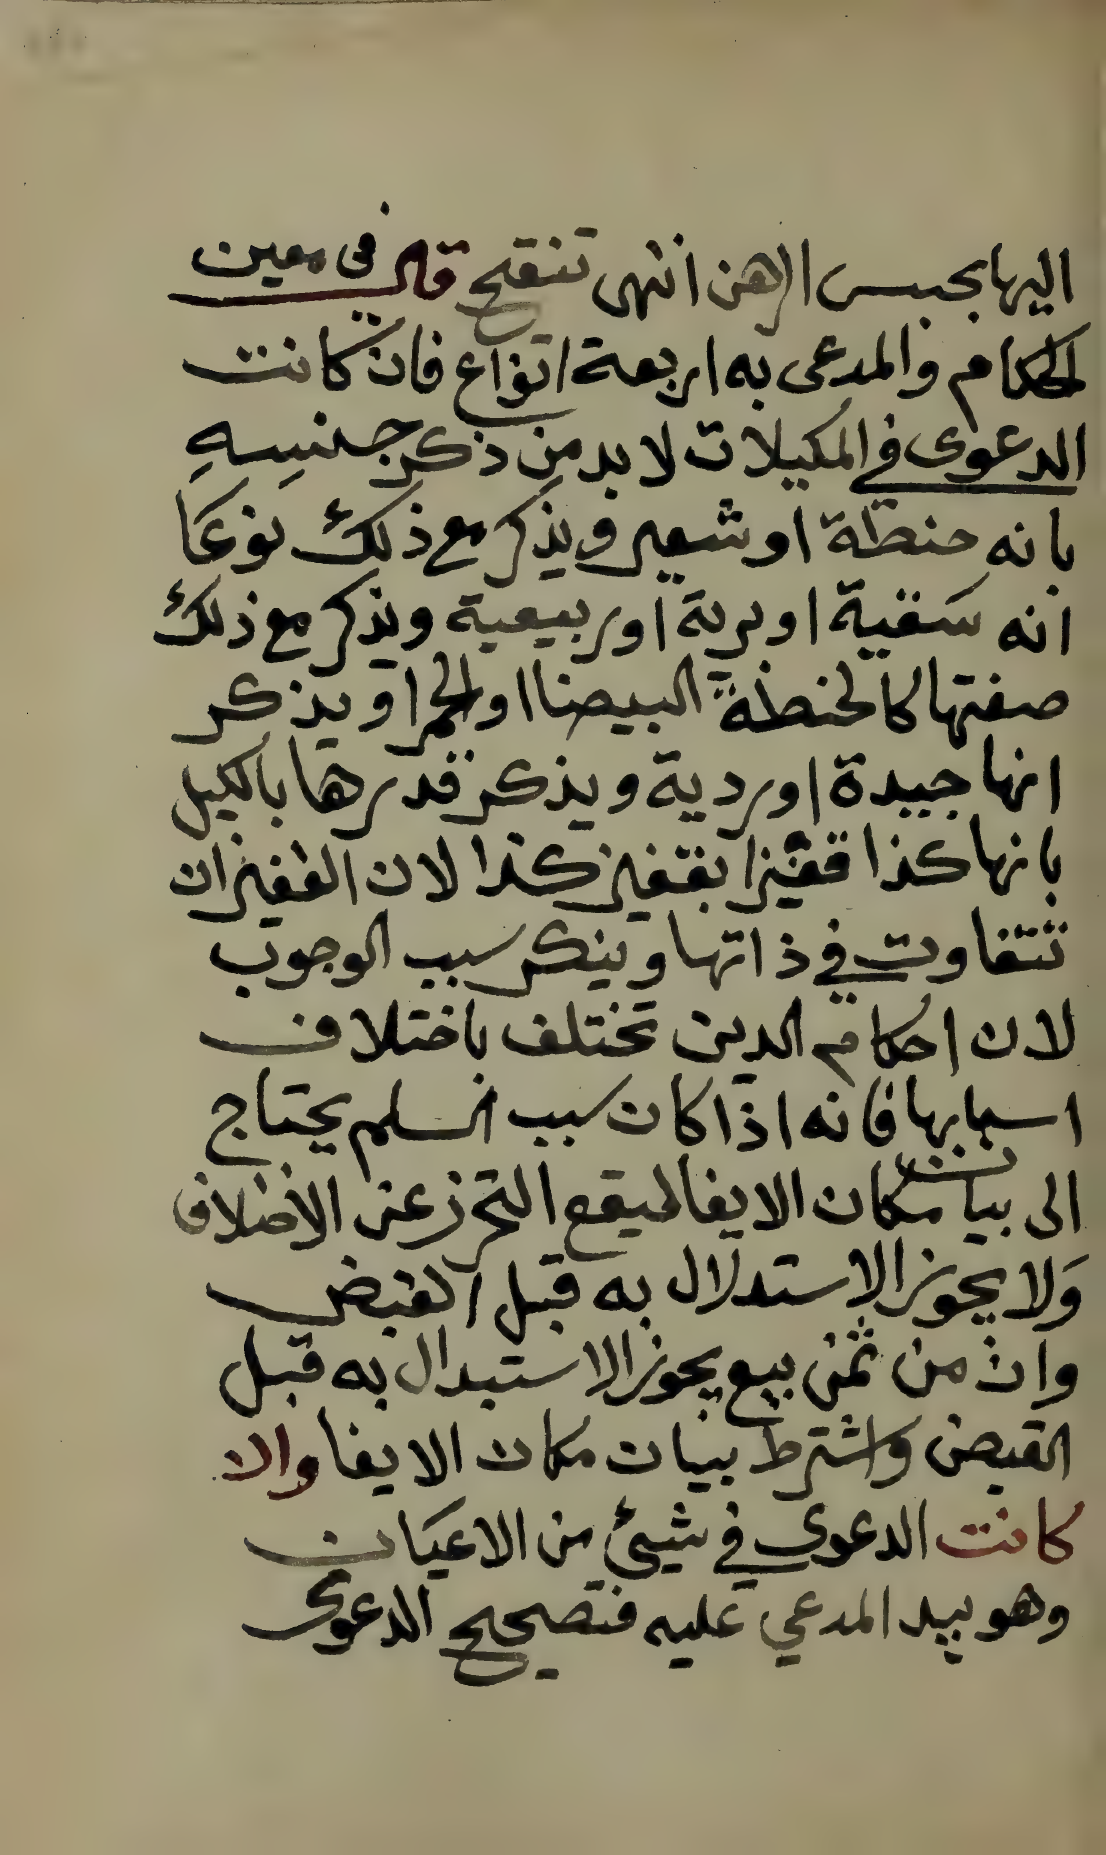 اليها بحبس الرهن انتهى تنقح قال في معين
الحكام والمدعى به اربعة انواع فان كانت
الدعوى في المكيلات لا بد من ذكر جنسه
بانه حنطة او شعير ويذكر مع ذلك نوعا
انه سقية او برية او ربيعية ويذكر مع ذلك
صفتها كالحنطة البيضا او الحمرا ويذكر
انها جيدة او ردية ويذكر قدرها بالكيل
بانها كذا قفيزا بقفيز كذا لان القفيزان
تتفاوت في ذاتها ويذكر سبب الوجوب
لان احكام الدين تختلف باختلاف
اسبابها فانه اذا كان سبب السلم يحتاج
الى بيان مكان الايفا ليقع التحرز عن الاختلاف
ولا يجوز الاستدلال به قبل القبض
وان من ثمن بيع يجوز الاستبدال به قبل
القبض واشترط بيان مكان الايفا والا
كانت الدعوى في شيئ من الاعيان
وهو بيد المدعي عليه فتصحيح الدعوى